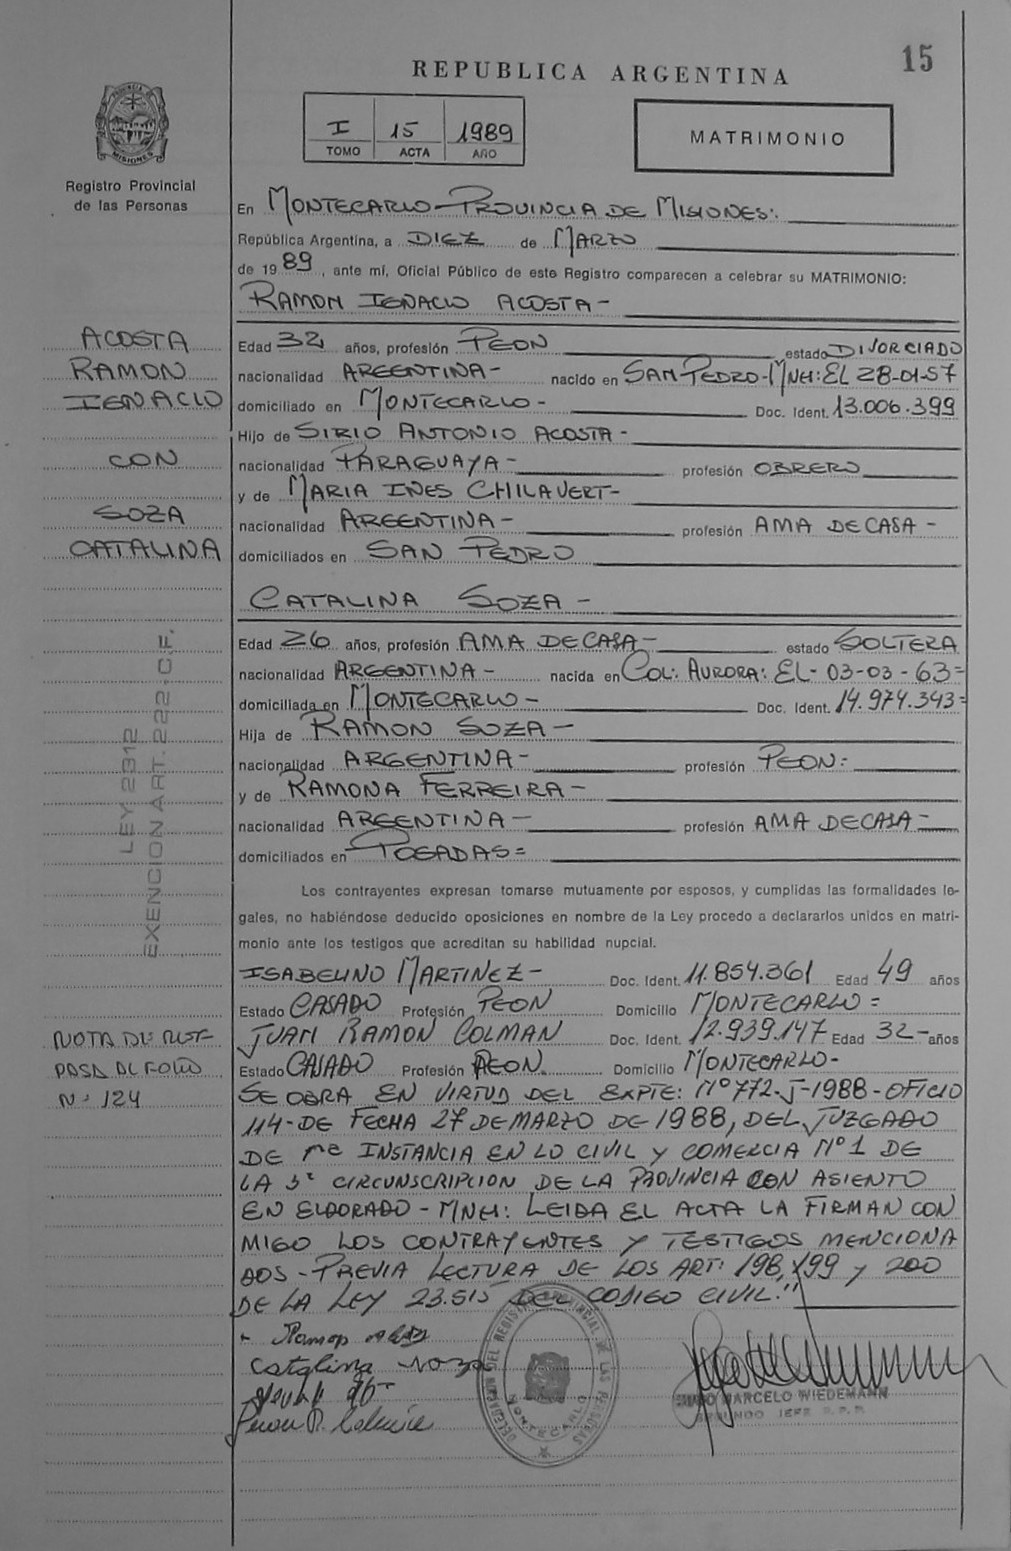 15
REPUBLICA ARGENTINA
I 15 1989
TOMO ACTA AÑO
MATRIMONIO
PROVINCIA DE MISIONES
Registro Provincial
de las Personas
En MONTECARLO - PROVINCIA DE MISIONES:
República Argentina, a DIEZ de MARZO
de 1989, ante mí, Oficial Público de este Registro comparecen a celebrar su MATRIMONIO:
RAMON IGNACIO ACOSTA -
ACOSTA
RAMON
IGNACIO
CON
SOZA
CATALINA
Edad 32 años, profesión PEON estado DIVORCIADO
nacionalidad ARGENTINA - nacido en SAN PEDRO - MNES: EL 28-01-57
domiciliado en MONTECARLO - Doc. Ident. 13.006.399
Hijo de SIRIO ANTONIO ACOSTA -
nacionalidad PARAGUAYA - profesión OBRERO
y de MARIA INES CHILAVERT -
nacionalidad ARGENTINA - profesión AMA DE CASA -
domiciliados en SAN PEDRO
CATALINA SOZA -
Edad 26 años, profesión AMA DE CASA - estado SOLTERA
nacionalidad ARGENTINA - nacida en COL: AURORA: EL - 03-03-63=
domiciliada en MONTECARLO - Doc. Ident. 14.974.343=
Hija de RAMON SOZA -
nacionalidad ARGENTINA - profesión PEON:
y de RAMONA FERREIRA -
nacionalidad ARGENTINA - profesión AMA DE CASA -
domiciliados en POSADAS=
LEY 2312
EXENCION ART. 222 · C.F.
Los contrayentes expresan tomarse mutuamente por esposos, y cumplidas las formalidades le-
gales, no habiéndose deducido oposiciones en nombre de la Ley procedo a declararlos unidos en matri-
monio ante los testigos que acreditan su habilidad nupcial.
ISABELINO MARTINEZ - Doc. Ident. 11.854.361 Edad 49 años
Estado CASADO Profesión PEON Domicilio MONTECARLO =
JUAN RAMON COLMAN Doc. Ident. 12.939.147 Edad 32 - años
Estado CASADO Profesión PEON. Domicilio MONTECARLO -
NOTA DE REF-
PASA AL FOLIO
Nº 124
SE OBRA EN VIRTUD DEL EXPTE: Nº 772-J-1988 - OFICIO
114 - DE FECHA 27 DE MARZO DE 1988, DEL JUZGADO
DE 1ra INSTANCIA EN LO CIVIL Y COMERCIA Nº 1 DE
LA 3ª CIRCUNSCRIPCION DE LA PROVINCIA CON ASIENTO
EN ELDORADO - MNES: LEIDA EL ACTA LA FIRMAN CON
MIGO LOS CONTRAYENTES Y TESTIGOS MENCIONA
DOS - PREVIA LECTURA DE LOS ART: 198, 199 Y 200
DE LA LEY 23.515 DEL CODIGO CIVIL."
Ramon
Catalina Soza
DELEGACION DEL REGISTRO PROVINCIAL DE LAS PERSONAS
MONTECARLO
HUGO MARCELO WIEDEMANN
SEGUNDO JEFE R.P.P.